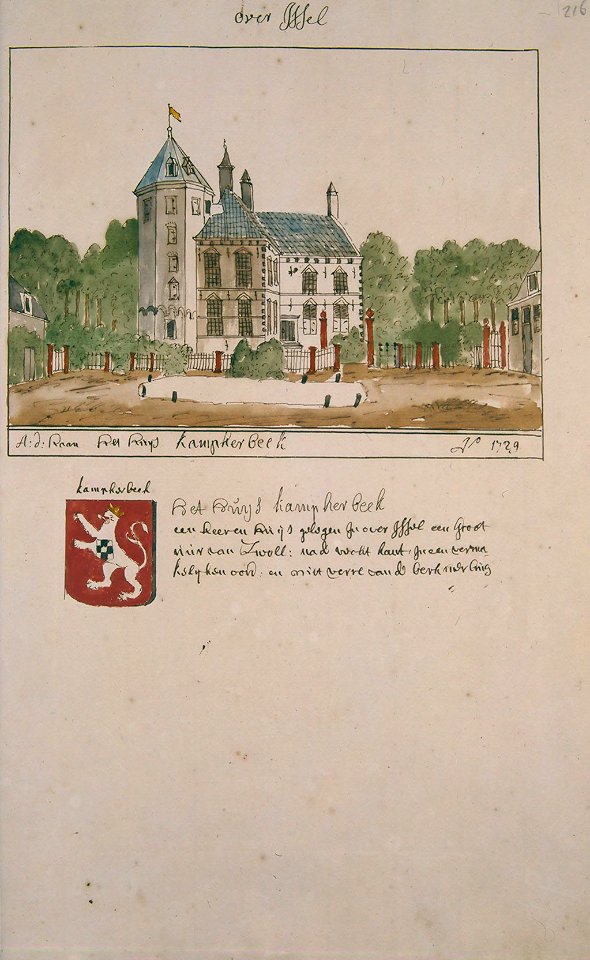 over Issel
216
A: d: Haan Het Huys kampherbeek Ao 1729
kampherbeek
Het Huys kampherbeek
een Heeren Huijs gelegen in over Issel een groot
uur van Zwoll: na de vecht kant, in een verma
kelijken oord: en niet verre van de berkmer brug